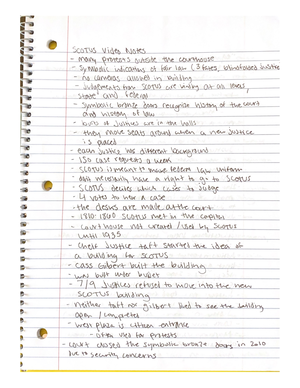 SCOTUS Video Notes
- many protests outside the courthouse
- Symbolic indicators of fair law (3 fates, blindfolded justice
- no cameras allowed in building
- judgements from SCOTUS are uniting at all levels,
state and federal
- Symbolic bronze doors recognize history of the court
and history of law
- busts of justices are in the halls
- they move seats around when a new justice
is placed
- each justice has different background
- 150 case requests a week
- SCOTUS is meant to make federal law uniform
- not necessarily have a right to go to SCOTUS
- SCOTUS decides which cases to judge
- 4 votes to hear a case
- the desks are made at the court
- 1810-1860 SCOTUS met in the capitol
- courthouse not created / used by SCOTUS
until 1935
- Chief Justice Taft started the idea of
a building for SCOTUS
- Cass Gilbert built the building
- was built under budget
- 7/9 justices refused to move into the new
SCOTUS building
- neither Taft nor Gilbert lived to see the building
open / completed
- west plaza is citizen entrance
- often used for protests
- court closed the symbolic bronze doors in 2010
due to security concerns